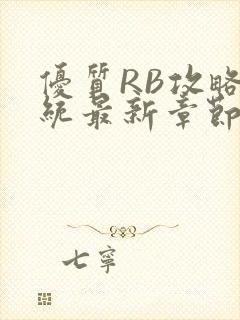 優質RB攻略
統最新章節
七寧